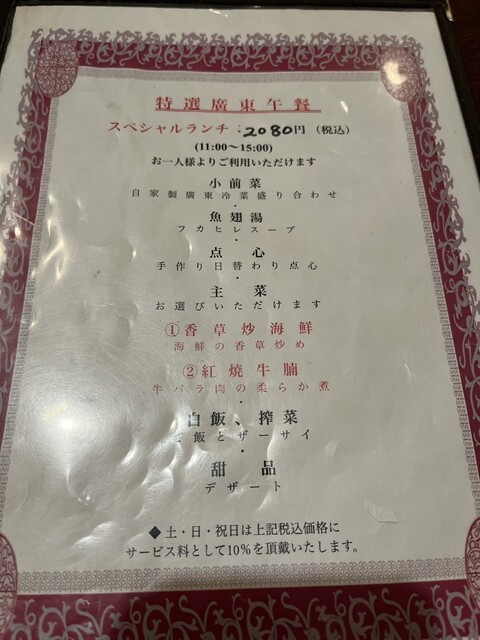 特選廣東午餐
スペシャルランチ：2080円（税込）
(11:00～15:00)
お一人様よりご利用いただけます
小前菜
自家製廣東冷菜盛り合わせ
・
魚翅湯
フカヒレスープ
・
点心
手作り日替わり点心
・
主菜
お選びいただけます
①香草炒海鮮
海鮮の香草炒め
②紅燒牛腩
牛バラ肉の柔らか煮
・
白飯、搾菜
ご飯とザーサイ
・
甜品
デザート
◆土・日・祝日は上記税込価格に
サービス料として10％を頂戴いたします。